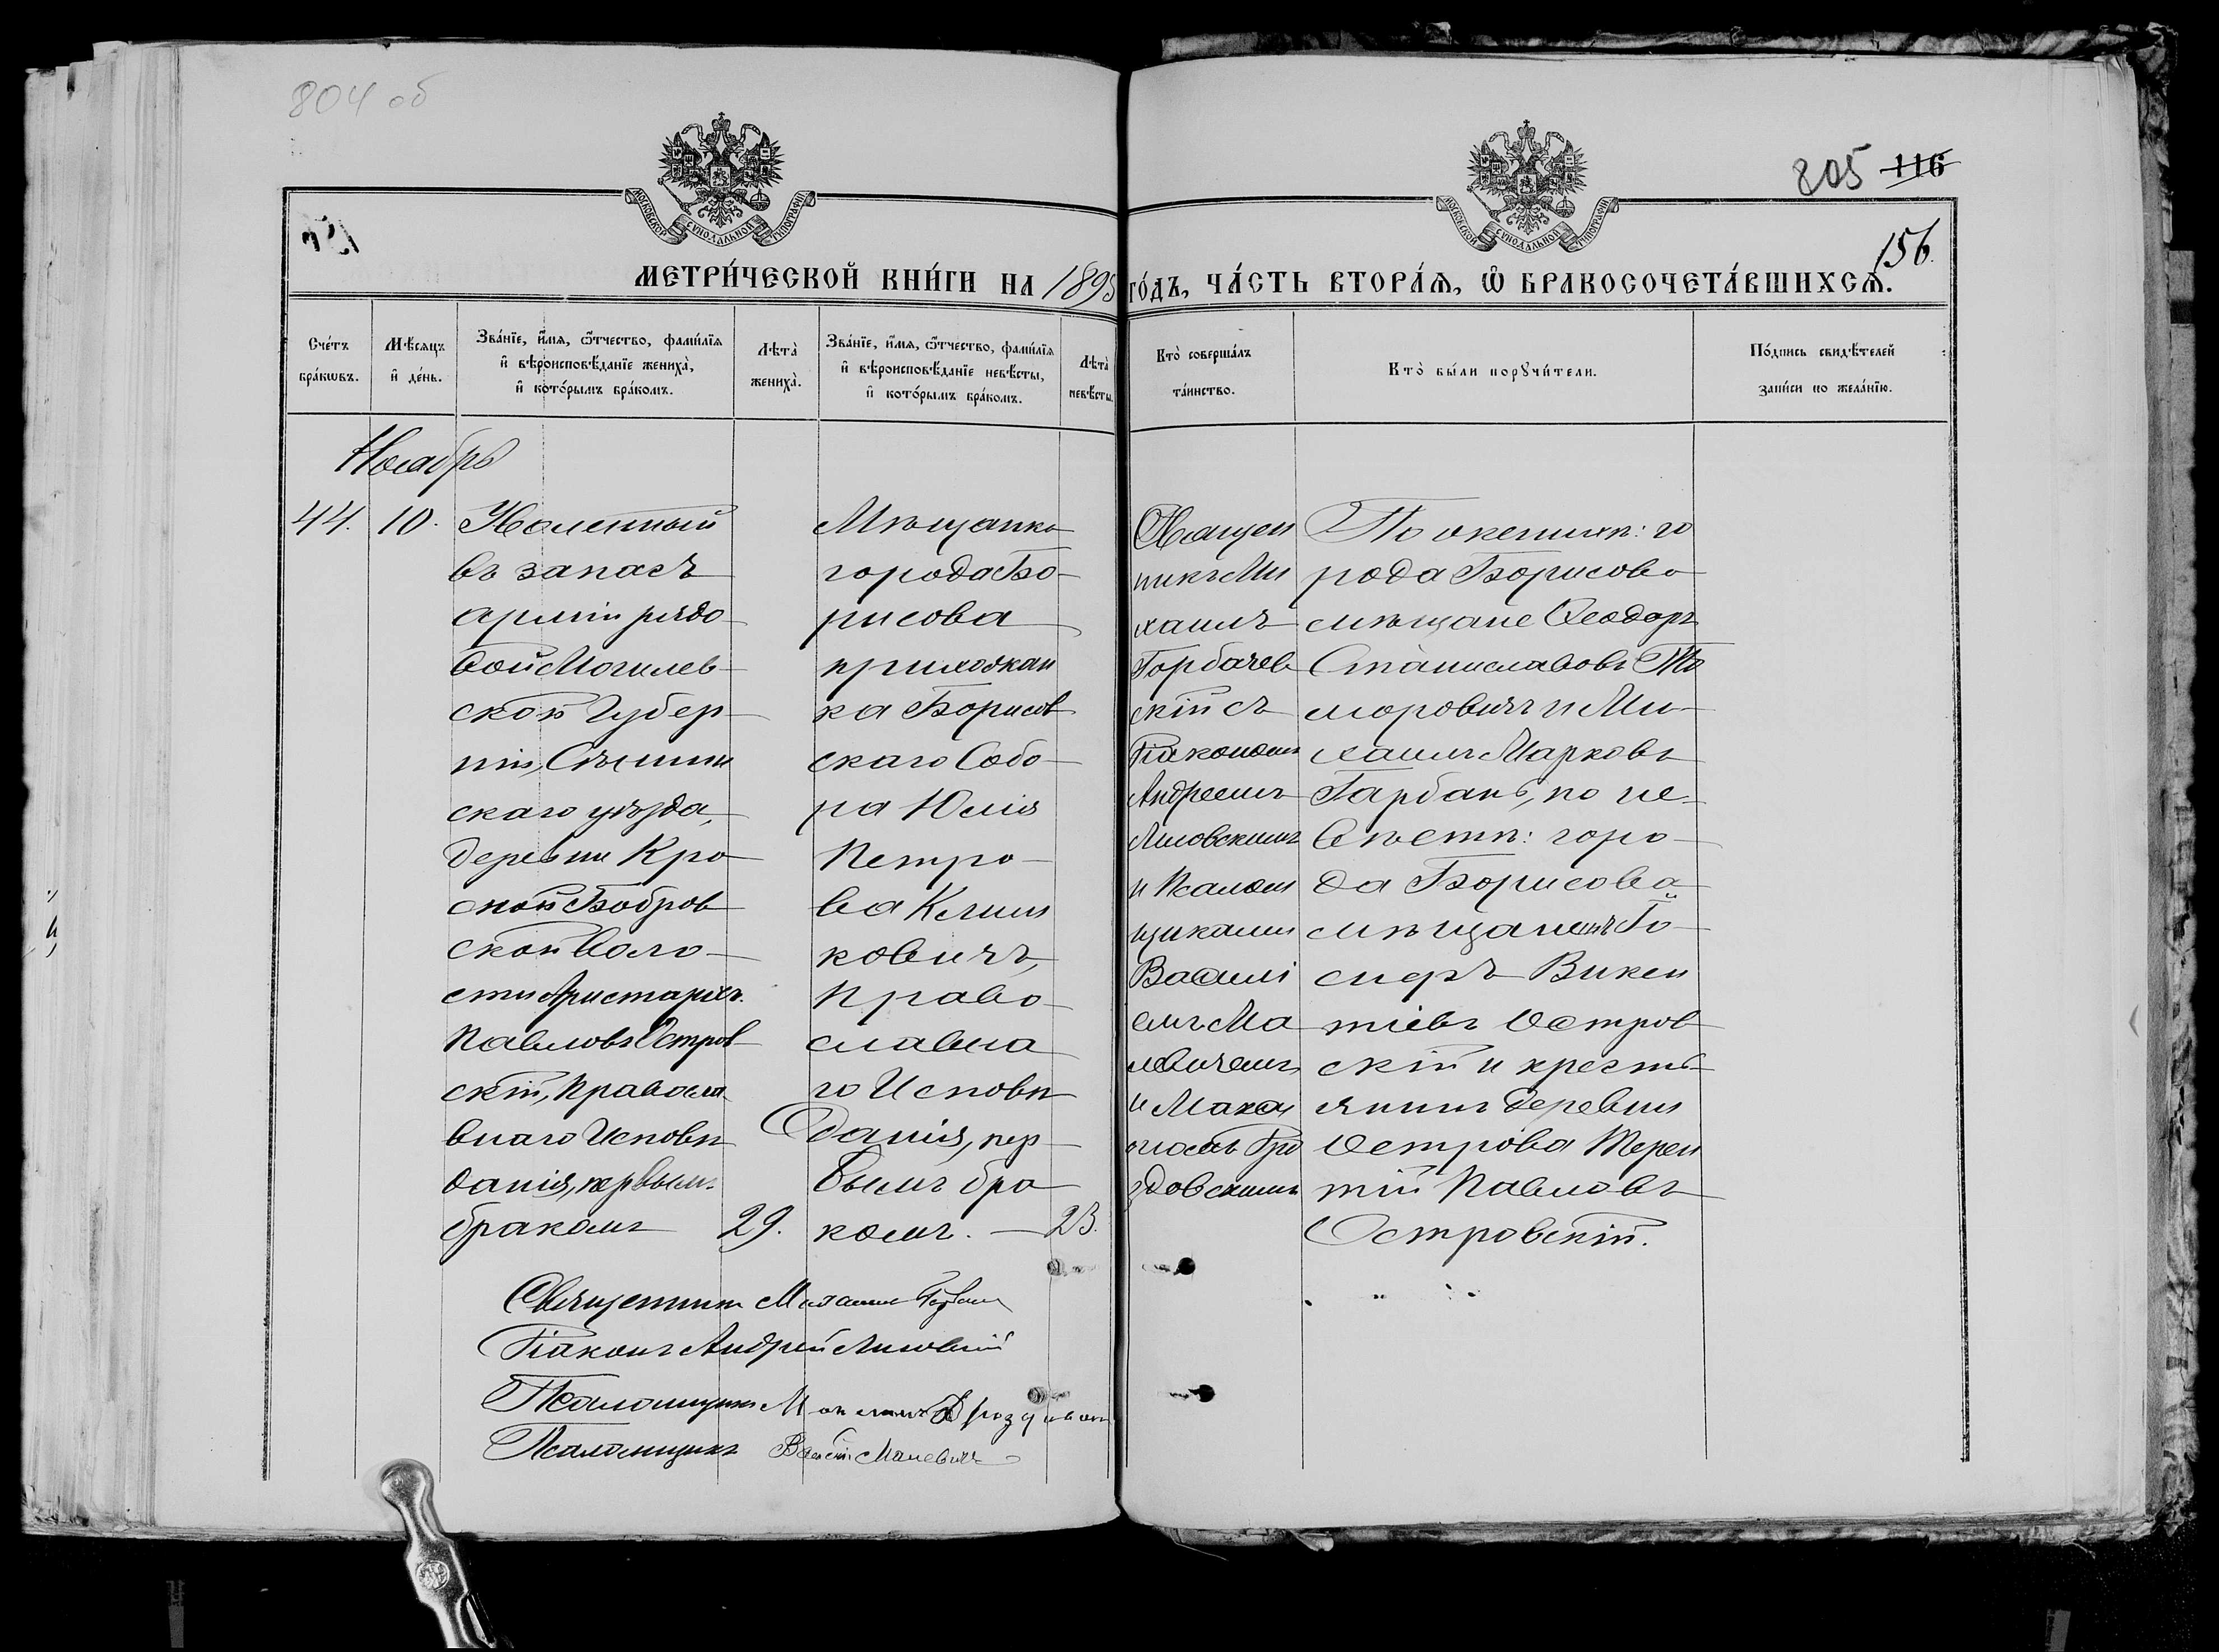 804 об
805 116
156.
МОСКОВСКОЙ СѴНОДАЛЬНОЙ ТИПОГРАФІИ
МОСКОВСКОЙ СѴНОДАЛЬНОЙ ТИПОГРАФІИ
МЕТРИ́ЧЕСКОЙ КНИ́ГИ НА 1895 ГО́ДЪ, ЧА́СТЬ ВТОРА́Ѧ, Ѽ БРАКОСОЧЕТА́ВШИХСѦ.
Сче́тъ
бра́кѡвъ.
Мѣ́сяцъ
и҆ де́нь.
Зва́нїе, и҆́мя, ѻ҆́тчество, фамı́лїя
и҆ вѣроисповѣ́данїе жениха̀,
и҆ кото́рымъ бра́комъ.
Лѣта̀
жениха̀.
Зва́нїе, и҆́мя, ѻ҆́тчество, фамı́лїя
и҆ вѣроисповѣ́данїе невѣ́сты,
и҆ кото́рымъ бра́комъ.
Лѣта̀
невѣ́сты.
Кто̀ соверша́лъ
та́инство.
Кто̀ бы́ли порꙋчи́тели.
По́дпись свидѣ́телей
за́писи по жела́нїю.
Ноябрь
44. 10.
въ запасъ
арміи рядо
вой Могилев
ской Губер
ніи, Сѣннин
скаго уѣзда,
деревни
Бобров
ской Воло
сти Аристархъ
Павловъ Остров
скій, Правосла
внаго Исповѣ
данія, первымъ
бракомъ 29.
Мѣщанка
города Бо
рисова
прихожан
ка Борисов
скаго Собо
ра Юлія
Петро
ва Клим
ковичъ,
Право
славна
го Исповѣ
данія, пер
вымъ бра
комъ. 23.
Священ
никъ Ми
хаилъ
Горбачев
скій съ
Діакономъ
Андреемъ
Лисовскимъ
и Псалом
щиками
Василі
емъ Ма
левичемъ
и Макси
момъ Дро
здовскимъ
По женихѣ: го
рода Борисова
мѣщане Ѳеодоръ
Станиславовъ То
моровичъ и Ми
хаилъ Марковъ
Гарбань, по не
вѣстѣ: горо
да Борисова
мѣщанинъ Іо
сифъ Викен
тіевъ Остров
скій и кресть
янинъ деревни
Острова Терен
тій Павловъ
Островскій.
Священникъ Михаилъ
Діаконъ Андрей Лисовскій
Псаломщикъ Максимъ Дроздовскій
Псаломщикъ Василій Малевичъ